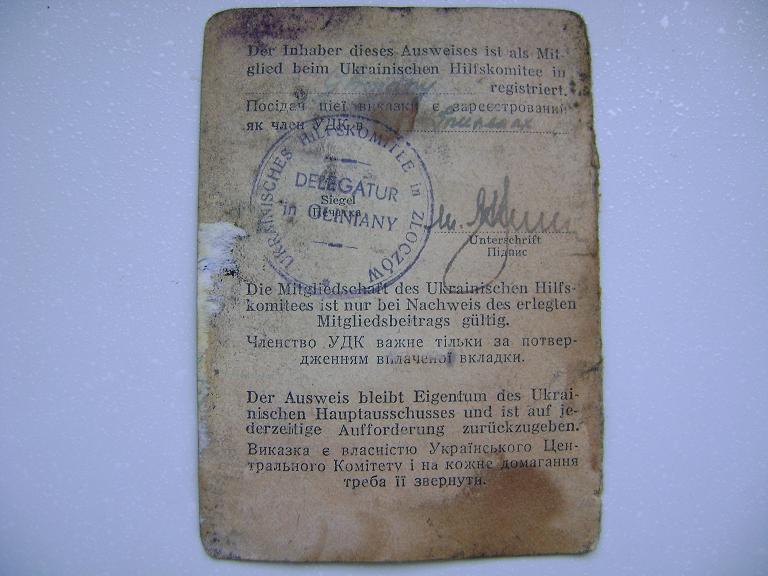 Der Inhaber dieses Ausweises ist als Mit-
glied beim Ukrainischen Hilfskomitee in
registriert.
Посідач цієї виказки є зареєстрований
як член УДК в
UKRAINISCHES HILFSKOMITEE in ZŁOCZÓW
DELEGATUR
in GLINIANY
Siegel
Печатка
Unterschrift
Підпис
Die Mitgliedschaft des Ukrainischen Hilfs-
komitees ist nur bei Nachweis des erlegten
Mitgliedsbeitrags gültig.
Членство УДК важне тільки за потвер-
дженням виплаченої вкладки.
Der Ausweis bleibt Eigentum des Ukrai-
nischen Hauptausschusses und ist auf je-
derzeitige Aufforderung zurückzugeben.
Виказка є власністю Українського Цен-
трального Комітету і на кожне домагання
треба її звернути.